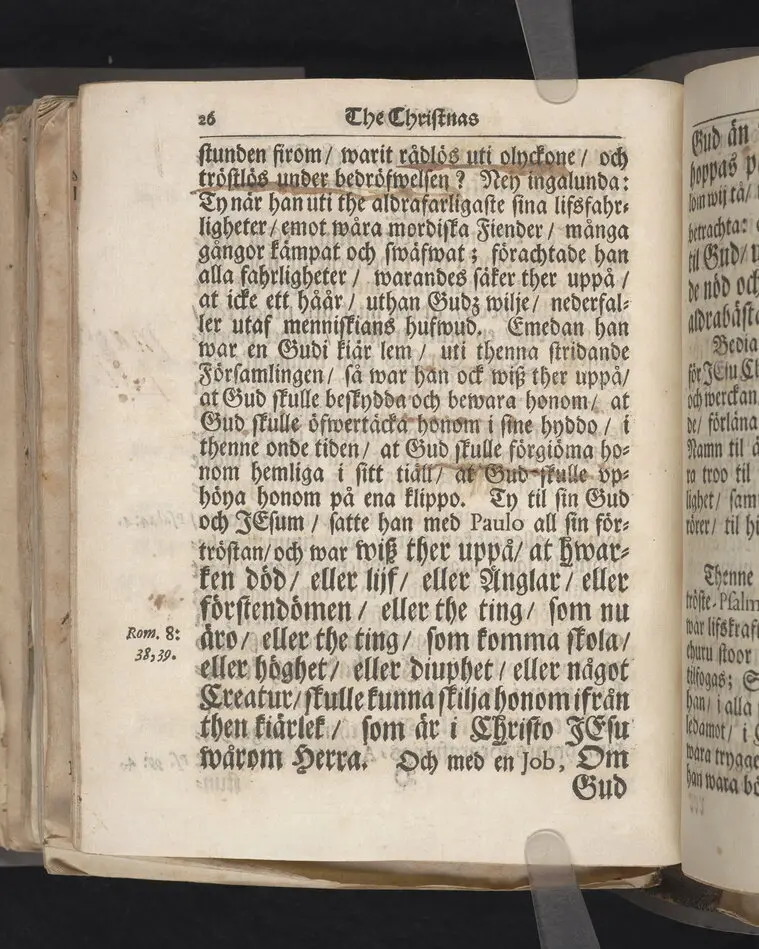 26 The Christnas
stunden firom / warit rådlös uti olyckone / och
tröstlös under bedröfwelsen? Ney ingalunda:
Ty när han uti the aldrafarligaste sina lifsfahr-
ligheter / emot wåra mordiska Fiender / många
gångor kämpat och swäfwat; förachtade han
alla fahrligheter / warandes säker ther uppå /
at icke ett håår / uthan Gudz wilje / nederfal-
ler utaf menniskians hufwud. Emedan han
war en Gudi kiär lem / uti thenna stridande
Församlingen / så war han ock wiß ther uppå /
at Gud skulle beskydda och bewara honom / at
Gud skulle öfwertäcka honom i sine hyddo / i
thenne onde tiden / at Gud skulle förgiöma ho-
nom hemliga i sitt tiäll / at Gud skulle vp-
höya honom på ena klippo. Ty til sin Gud
och JEsum / satte han med Paulo all sin för-
tröstan / och war wiß ther uppå / at hwar-
ken död / eller lijf / eller Änglar / eller
förstendömen / eller the ting / som nu
äro / eller the ting / som komma skola /
eller höghet / eller diuphet / eller något
Creatur / skulle kunna skilja honom ifrån
then kiärlek / som är i Christo JEsu
wårom Herra. Och med en Job, Om
Gud
Rom. 8:
38,39.
Gud än
hoppas p
som wij tå /
betrachta:
til Gud /
de nöd och
aldrabäst
Bedia
för JEsu C
och werckan
de / förläna
Namn til
ra troo til
lighet / sam
rörer / til hi
Thenne
tröste-Psalm
war lifskraf
churu stoor
tilfogas; S
han / i alla
ledamot / i
wara trygge
han wara bö